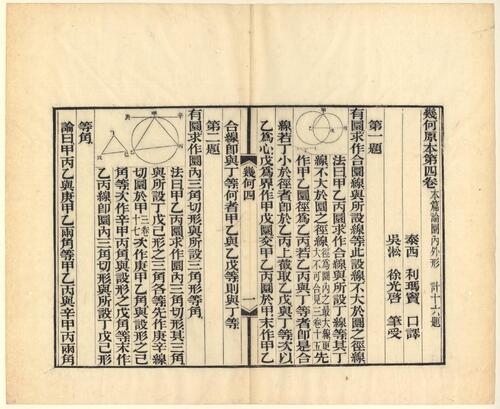 幾何原本第四卷 本篇論圜內外形 計十六題
泰西 利瑪竇 口譯
吳淞 徐光啓 筆受
第一題
有圜求作合圜線與所設線等此設線不大於圜之徑線
法曰甲乙丙圜求作合線與所設丁線等其丁
線不大於圜之徑線徑為圜內之最大線更大不可合見三卷十五先
作甲乙圜徑為乙丙若乙丙與丁等者即是合
線若丁小於徑者即於乙丙上截取乙戊與丁等次以
乙為心戊為界作甲戊圜交甲乙丙圜於甲末作甲乙
幾何四 一
合線即與丁等何者甲乙與乙戊等則與丁等
第二題
有圜求作圜內三角切形與所設三角形等角
法曰甲乙丙圜求作圜內三角切形其三角
與所設丁戊己形之三角各等先作庚辛線
切圜於甲三卷十七次作庚甲乙角與設形之己
角等次作辛甲丙角與設形之戊角等末作
乙丙線即圜內三角切形與所設丁戊己形
等角
論曰甲丙乙與庚甲乙兩角等甲乙丙與辛甲丙兩角